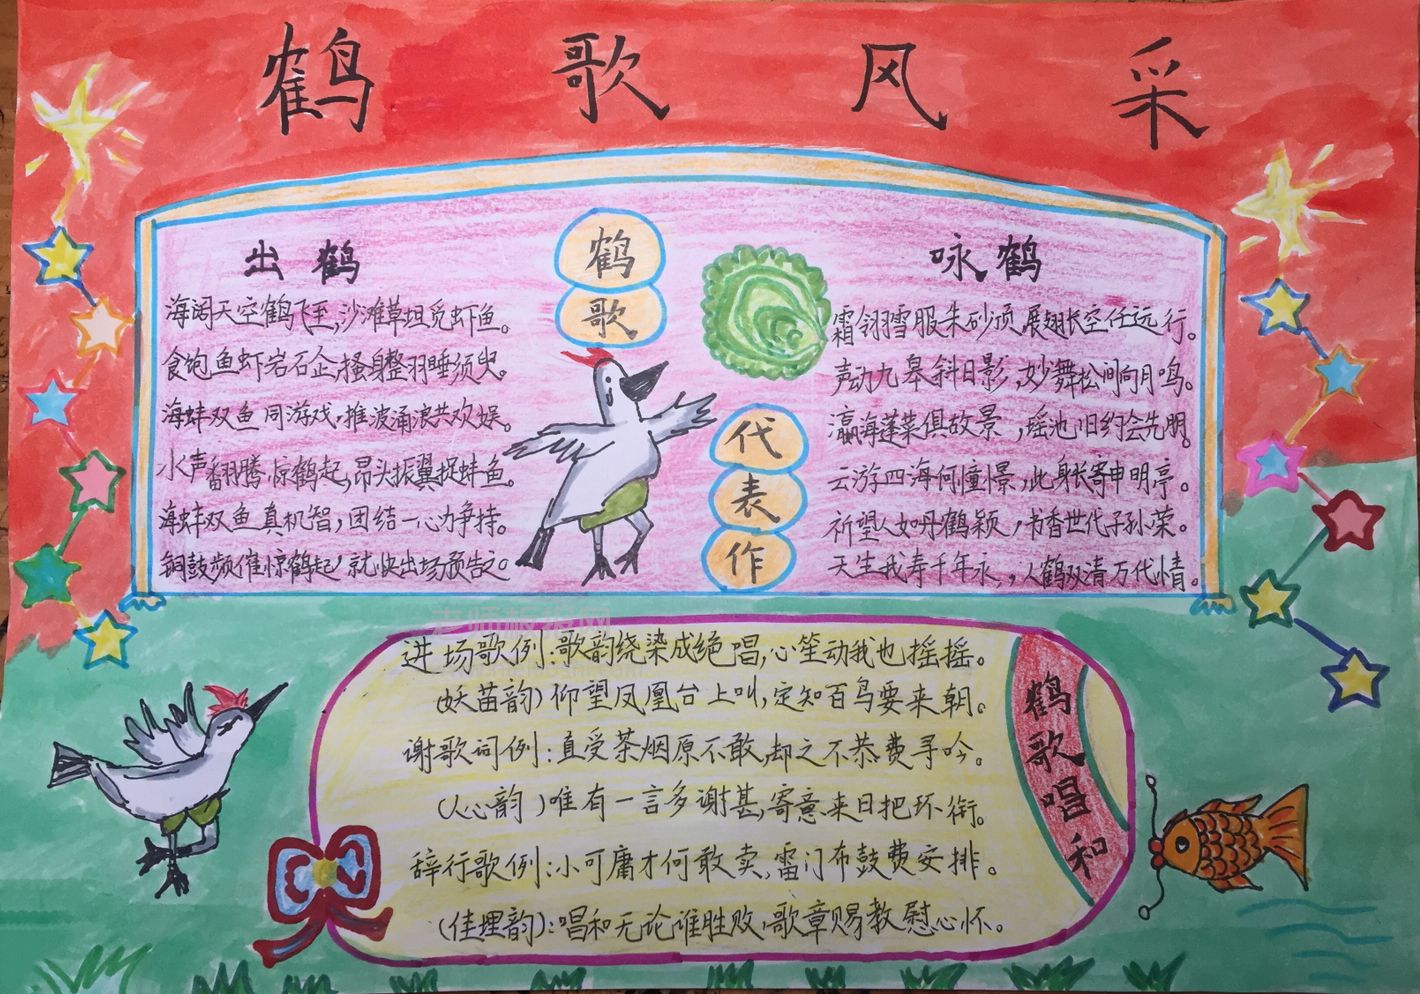 鹤歌风采
出鹤
海阔天空鹤飞至,沙滩草坦觅虾鱼。
食饱鱼虾岩石企,搔身整羽睡须臾。
海蚌双鱼同游戏,推波涌浪共欢娱。
水声翻腾惊鹤起,昂头振翼捉蚌鱼。
海蚌双鱼真机智,团结一心力争持。
铜鼓频催惊鹤起,就快出场预告之。
鹤歌
代表作
咏鹤
霜翎雪服朱砂顶,展翅长空任远行。
声动九皋斜日影,妙舞松间向月鸣。
瀛海蓬莱俱故景,瑶池旧约会先朋。
云游四海何憧憬,此身长寄申明亭。
祈望人如丹鹤颖,书香世代子孙荣。
天生我寿千年永,人鹤双清万代情。
老师板报网
进场歌例:歌韵绕染成绝唱,心笙动我也摇摇。
(妖苗韵)仰望凤凰台上叫,定知百鸟要来朝。
谢歌词例:直受茶烟原不敢,却之不恭费寻吟。
(人心韵)唯有一言多谢甚,寄意来日把环衔。
辞行歌例:小可庸才何敢卖,雷门布鼓费安排。
(佳埋韵):唱和无论谁胜败,歌章赐教慰心怀。
鹤歌唱和